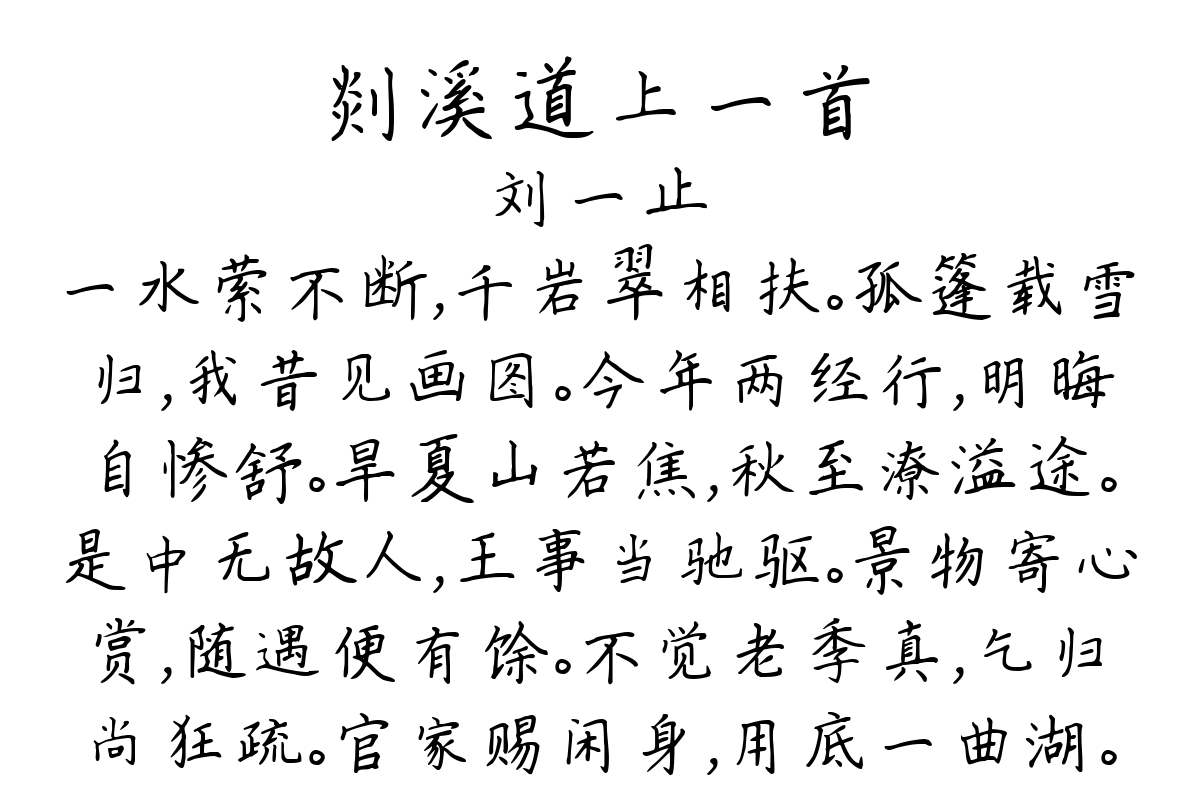 剡溪道上一首
刘一止
一水萦不断,千岩翠相扶。孤篷载雪
归,我昔见画图。今年两经行,明晦
自惨舒。旱夏山若焦,秋至潦溢途。
是中无故人,王事当驰驱。景物寄心
赏,随遇便有馀。不觉老季真,乞归
尚狂疏。官家赐闲身,用底一曲湖。